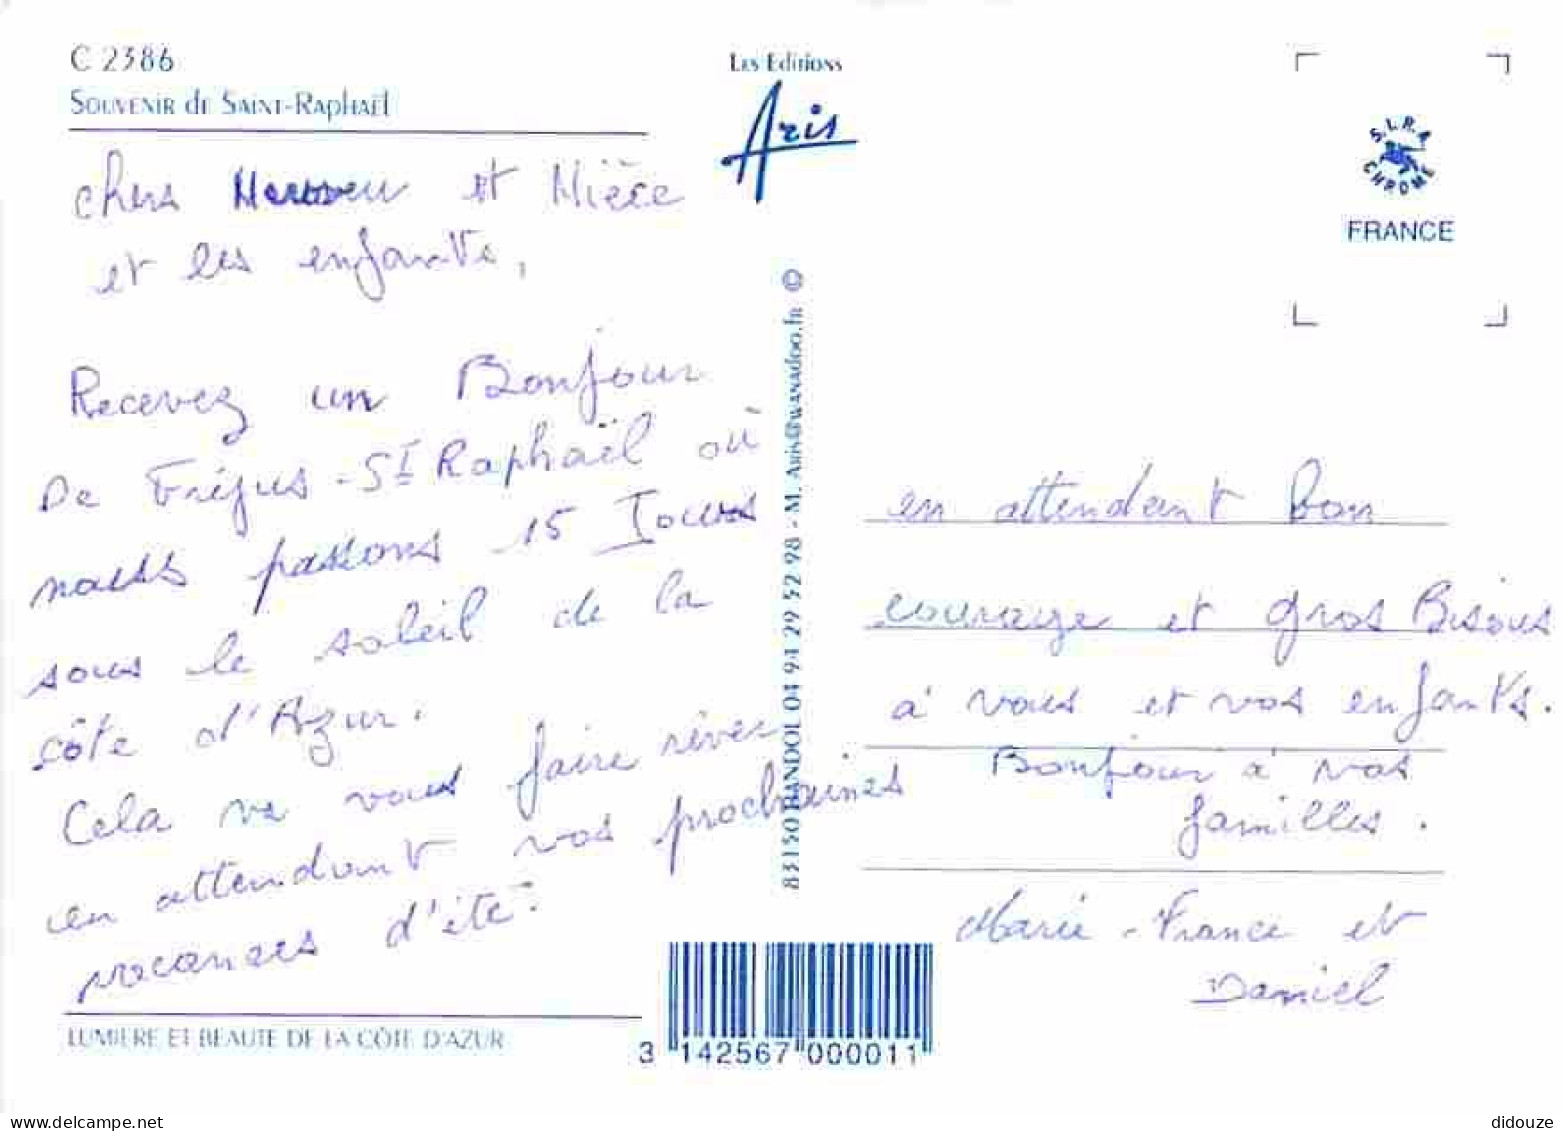 C 2386
Souvenir de Saint-Raphaël
chers et
et les enfants,
Recevez un Bonjour
De Fréjus - St Raphaël où
nous passons 15 Jours
sous le soleil de la
côte d'Azur.
Cela va vous faire rêver
en attendant vos prochaines
vacances d'été.
LUMIERE ET BEAUTE DE LA CÔTE D'AZUR
Les Editions
Aris
83150 BANDOL 04 94 29 52 98 - M. Aris@wanadoo.fr ©
3 142567 000011
S.L.R.A
CHROME
FRANCE
en attendant bon
courage et gros Bisous
à vous et vos enfants.
Bonjour à vos
familles.
Marie-France et
Daniel
delcampe.net
didouze